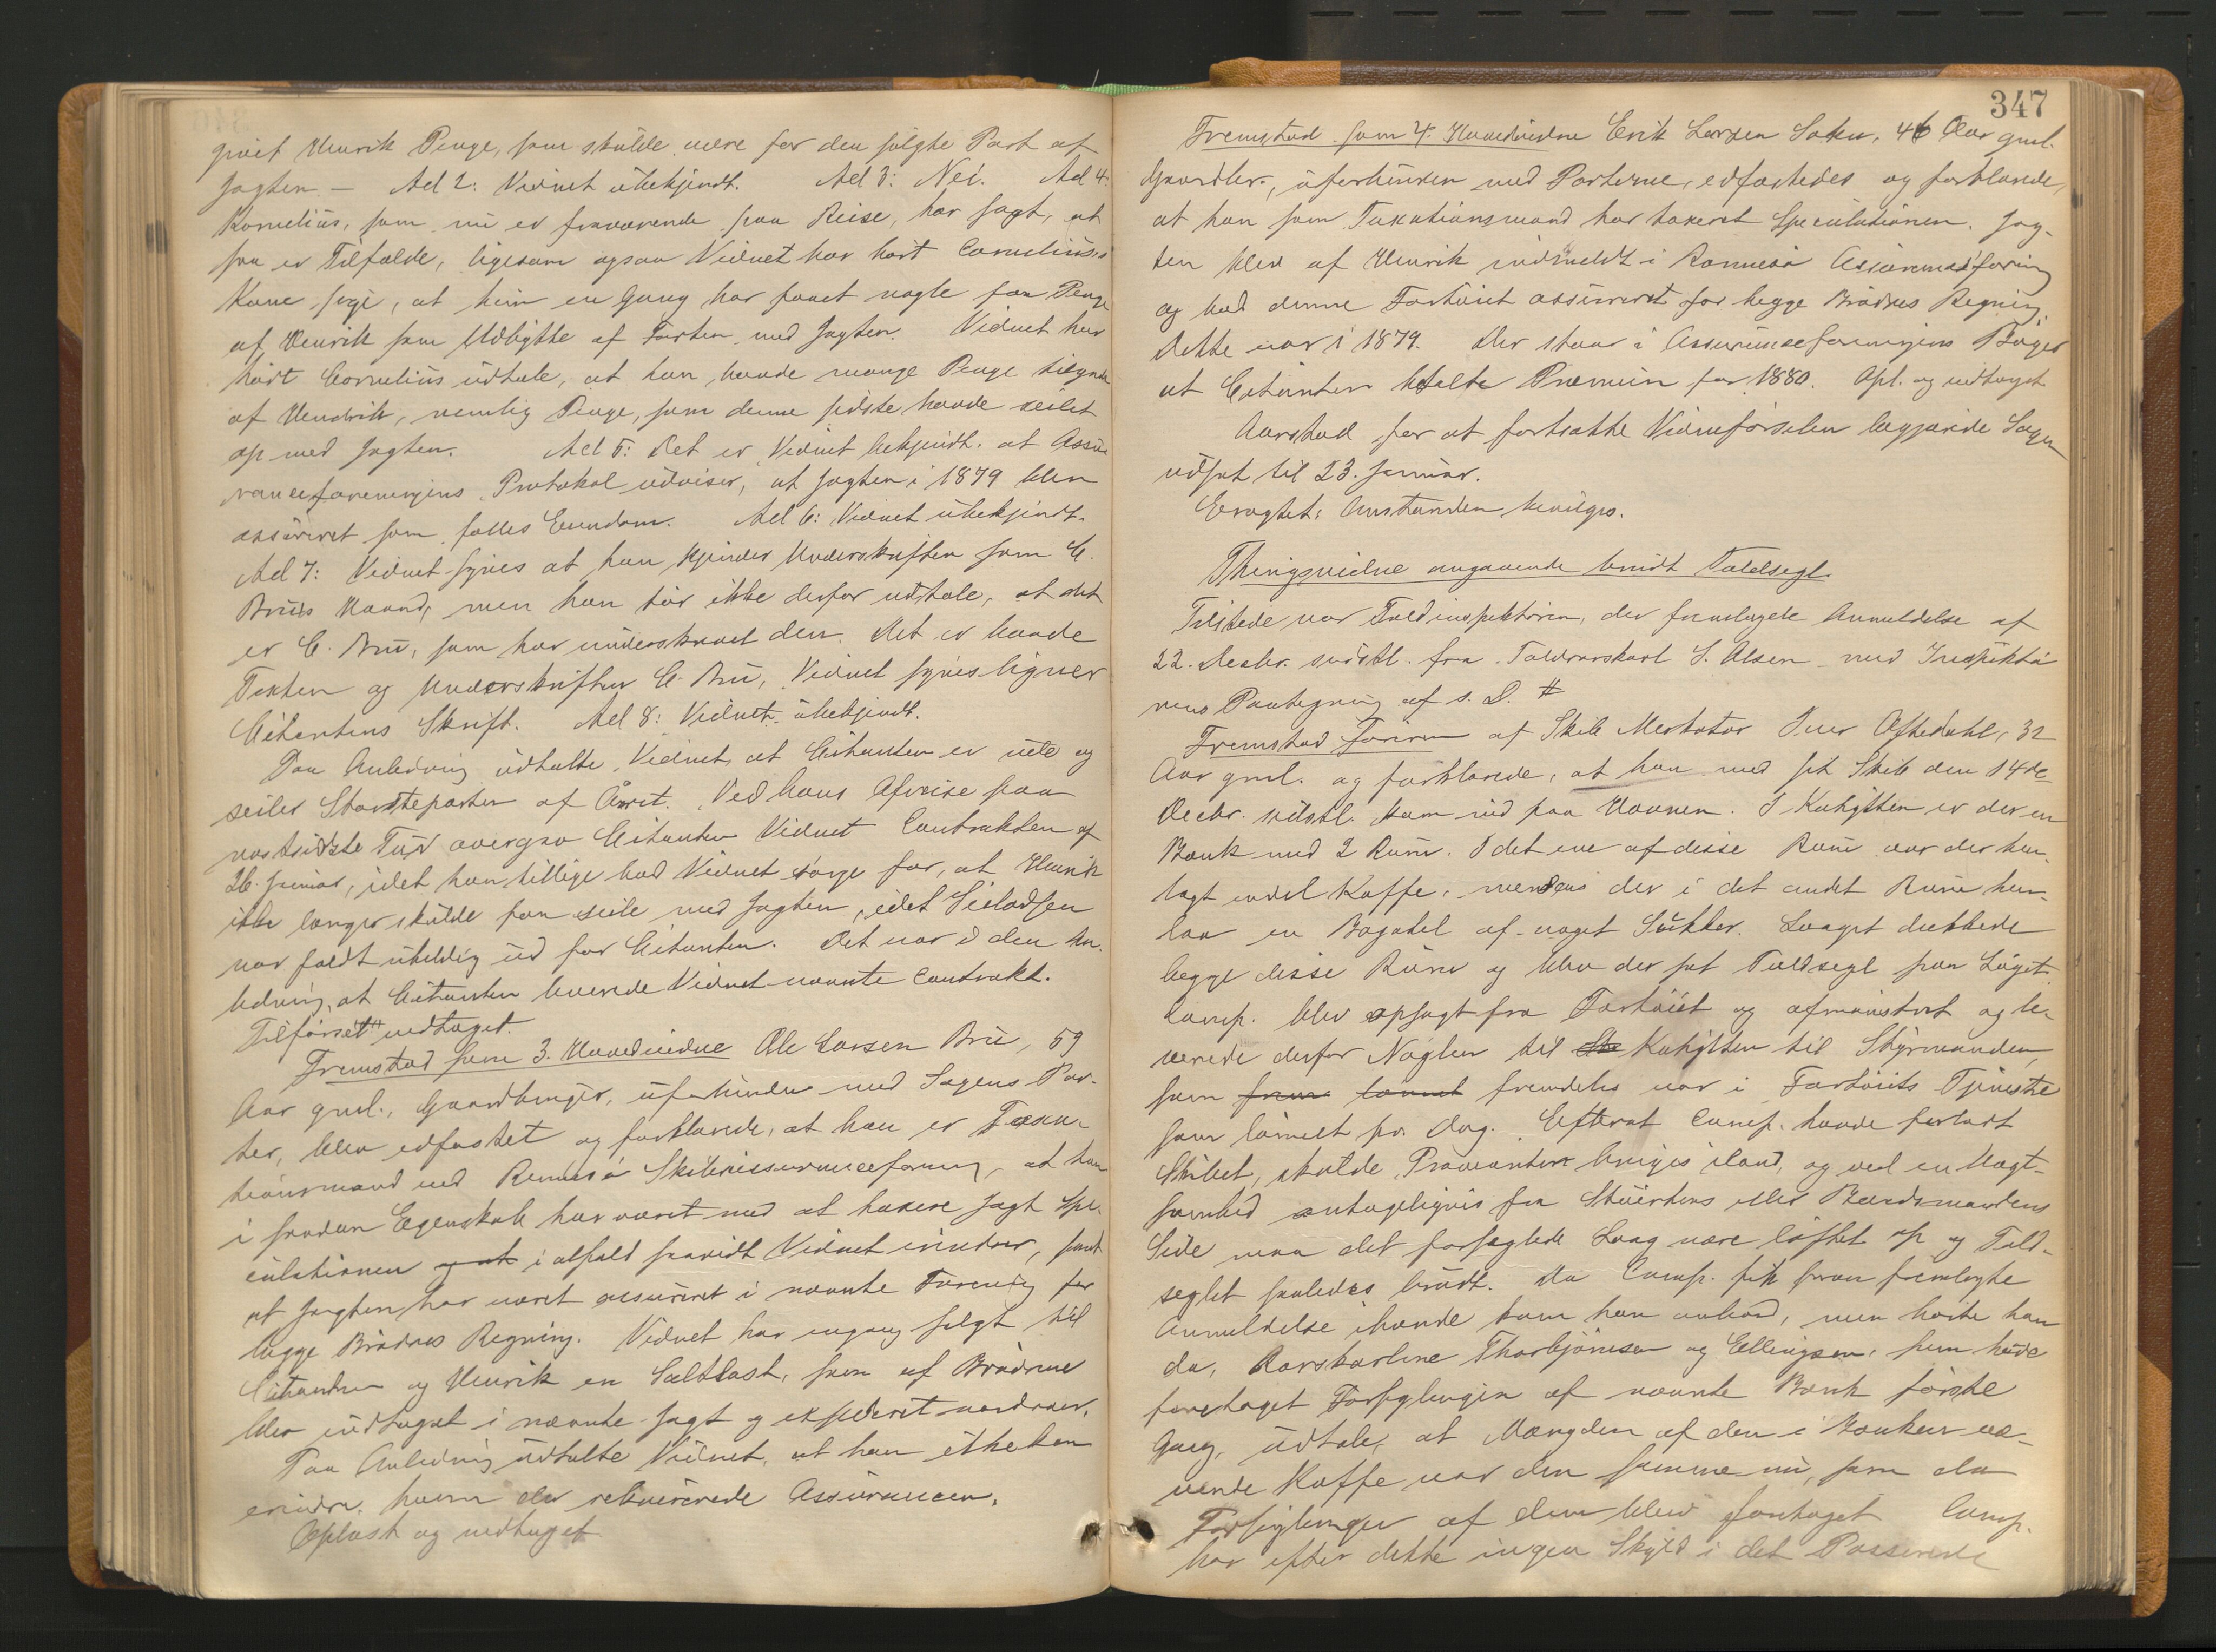 givet Henrik Penge, som skulde være for den solgte Part af
Jagten. — Ad 2: Vidnet ubekjendt. Ad 3: Nei. Ad 4:
Kornelius, som nu er fraværende paa Reise, har sagt, at
saa er Tilfælde, ligesom ogsaa Vidnet har hørt Cornelius's
Kone sige, at hun en Gang har faaet nogle faa Penge
af Henrik som Udbytte af Farten med Jagten. Vidnet har
hørt Cornelius udtale, at han havde mange Penge tilgode
af Hendrik, nemlig Penge, som denne sidste havde seilet
op med Jagten. Ad 5: Det er Vidnet bekjendt. at Assu-
ranceforeningens Protokol udviser, at Jagten i 1879 blev
assureret som fælles Eiendom. Ad 6: Vidnet ubekjendt.
Ad 7: Vidnet synes at han kjender Underskriften som C.
Brus Haand, men han tør ikke derfor udtale, at det
er C. Bru, som har underskrevet den. Det er baade
Texten og Underskriften C. Bru, Vidnet synes ligner
Citantens Skrift. Ad 8: Vidnet ubekjendt.
Paa Anledning udtalte Vidnet, at Citanten er ute og
seiler Størsteparten af Året. Ved hans Afreise paa
næstsidste Tur overgav Citanten Vidnet Contrakten af
26. Januar, idet han tillige bad Vidnet sørge for, at Henrik
ikke længer skulde faa seile med Jagten, idet Seiladsen
var faldt uheldig ud for Citanten. Det var i den An-
ledning, at Citanten leverede Vidnet nævnte Contrakt.
Tilførset vedtaget.
Fremstod som 3. Hovedvidne Ole Larsen Bru, 59
Aar gml., Gaardbruger, ubeslægtet med Sagens Par-
ter, blev edfæstet og forklarede, at han er Taxa-
tionsmand ved Rennesø Skibsassuranceforening, at han
i saadan Egenskab har været med at taxere Jagt Spe-
culationen og at i alfald saavidt Vidnet erindrer, samt
at Jagten har været assureret i nævnte Forening for
begge Brødres Regning. Vidnet har engang solgt til
Citanten og Henrik en Saltlast, som af Brødrene
blev indtaget i nævnte Jagt og expederet nordover.
Paa Anledning udtalte Vidnet, at han ikke kan
erindre, hvem der rekvirerede Assurancen.
Oplæst og vedtaget
347
Fremstod som 4. Hovedvidne Erik Larsen Sokn, 46 Aar gml.
Gaardbr., uforbunden med Parterne, edfæstedes og forklarede,
at han som Taxationsmand har taxeret Speculationen. Jag-
ten blev af Henrik indmeldt i Rennesø Assuranceforening
og blev denne Fartøiet assureret for begge Brødres Regning.
Dette var i 1879. Der staar i Assuranceforeningens Bøger
at Citanten betalte Præmien for 1880. Opl. og vedtaget
Aarstad for at fortsætte Vidneførselen begjærede Sagen
udsat til 23. Januar.
Eragtet: Anstanden bevilges.
Thingsvidne angaaende brudt Toldsegl.
Tilstede var Toldinspektøren, der fremlagde Anmeldelse af
22. Decbr. sidstl. fra Toldrorskarl S. Olsen med Inspektø-
rens Paategning af s. D. #
Fremstod Føreren af Skib Merkator Iver Aftedahl, 32
Aar gml. og forklarede, at han med sit Skib den 14de
Decbr. sidstl. kom ind paa Havnen. I Kahytten er der en
Bænk med 2 Rum. I det ene af disse Rum var der hen-
lagt endel Kaffe, medens der i det andet Rum hen-
laa en Bagatel af noget Sukker. Laaget dækkede
begge disse Rum og blev der sat Toldsegl paa Låget.
Comp. blev opsagt fra Fartøiet og afmønstret og le-
verede derfor Nøglen til Kahytten til Styrmanden,
som fremdeles var i Fartøiets Tjeneste
som lønnet pr. Dag. Efterat Comp. havde forladt
Skibet, skulde Provianten bringes iland, og ved en Uagt-
somhed antageligvis fra Stuertens eller Baadsmandens
Side maa det forseglede Laag være løftet op og Told-
seglet saaledes brudt. Da Comp. fik foran fremlagte
Anmeldelse ihænde kom han ombord, men hørte han
da, Rorskarlene Thorbjørnsen og Ellingsen, som havde
foretaget Forseglingen af nævnte Bænk første
Gang, udtale, at Mængden af den i Bænken væ-
rende Kaffe var den samme nu, som da
Forseglingen af den blev foretaget Comp.
har efter dette ingen Skyld i det Passerede